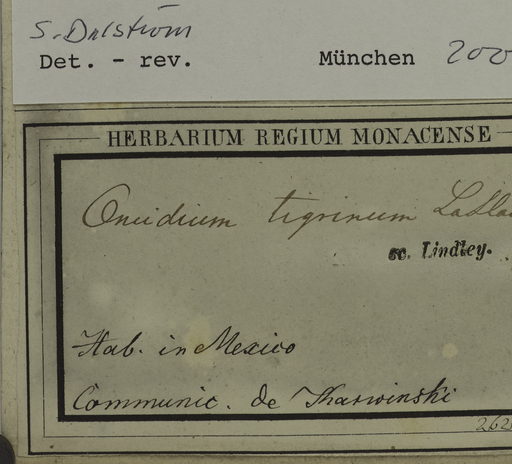 S. Dalström
Det. - rev. München 200
HERBARIUM REGIUM MONACENSE
Oncidium tigrinum LaLla
sc. Lindley.
Hab. in Mexico
Communic. de Karwinski
262